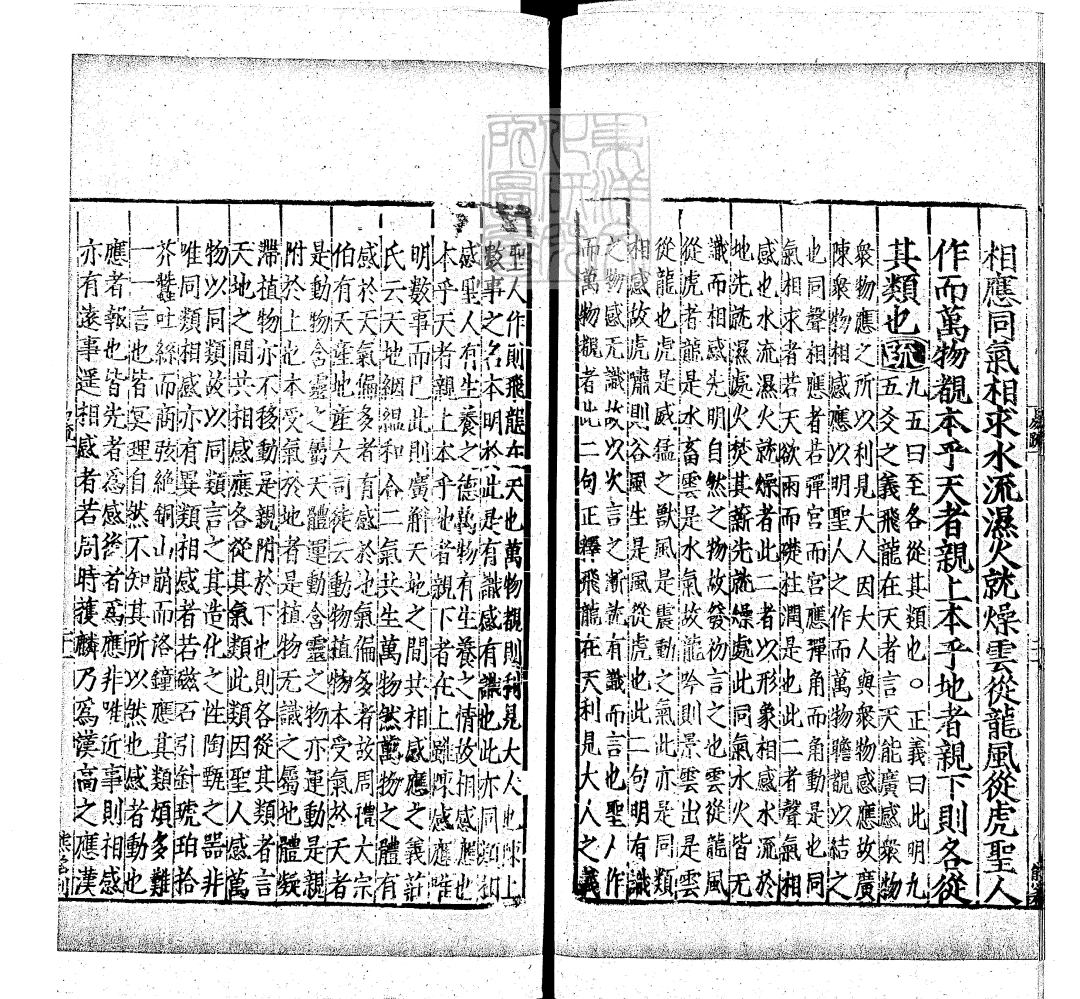 相應同氣相求水流濕火就燥雲從龍風從虎聖人
作而萬物覩本乎天者親上本乎地者親下則各從
其類也疏九五曰至各從其類也○正義曰此明九
五爻之義飛龍在天者言天能廣感衆物
衆物應之所以利見大人因大人與衆物感應故廣
陳衆物相感應以明聖人之作而萬物瞻覩以結之
也同聲相應者若彈宮而宮應彈角而角動是也同
氣相求者若天欲雨而礎柱潤是也此二者聲氣相
感也水流濕火就燥者此二者以形象相感水流於
地先就濕處火焚其薪先就燥處此同氣水火皆无
識而相感先明自然之物故發初言之也雲從龍風
從虎者龍是水畜雲是水氣故龍吟則景雲出是雲
從龍也虎是威猛之獸風是震動之氣此亦是同類
相感故虎嘯則谷風生是風從虎也此二句明有識
之物感无識故以次言之漸就有識而言也聖人作
而萬物覩者此二句正釋飛龍在天利見大人之義
聖人作則飛龍在天也萬物覩則利見大人也陳上
數事之名本明於此是有識感有識也此亦同類相
感聖人有生養之德萬物有生養之情故相感應也
本乎天者親上本乎地者親下者在上雖陳感應唯
明數事而已此則廣解天地之間共相感應之義莊
氏云天地絪縕和合二氣共生萬物然萬物之體有
感於天氣偏多者有感於地氣偏多者故周禮大宗
伯有天產地產大司徒云動物植物本受氣於天者
是動物含靈之屬天體運動含靈之物亦運動是親
附於上也本受氣於地者是植物无識之屬地體凝
滯植物亦不移動是親附於下也則各從其類者言
天地之間共相感應各從其氣類此類因聖人感萬
物以同類故以同類言之其造化之性陶甄之器非
唯同類相感亦有異類相感者若磁石引針琥珀拾
芥蠶吐絲而商弦絕銅山崩而洛鐘應其類煩多難
一一言也皆冥理自然不知其所以然也感者動也
應者報也皆先者爲感後者爲應非唯近事則相感
亦有遠事遥相感者若周時獲麟乃爲漢高之應漢